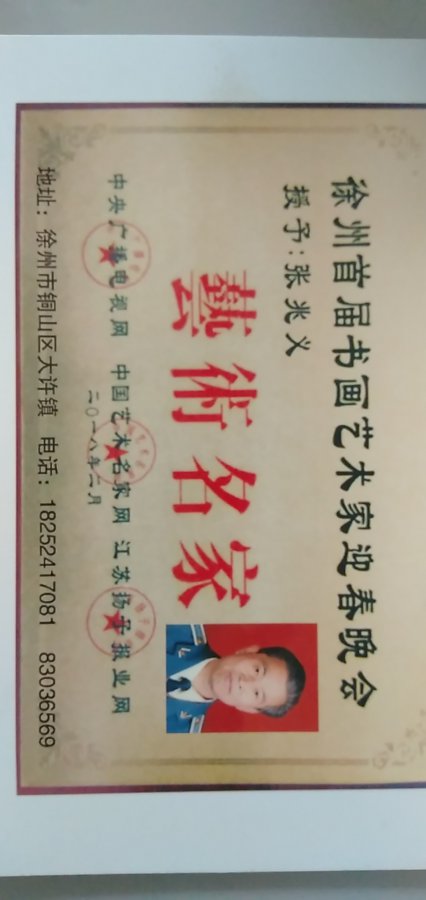 徐州首届书画艺术家迎春晚会
授予：张兆义
藝術名家
中央广播电视网 中国艺术名家网 江苏扬子报业网
二〇一八年二月
地址：徐州市铜山区大许镇 电话：18252417081 83036569